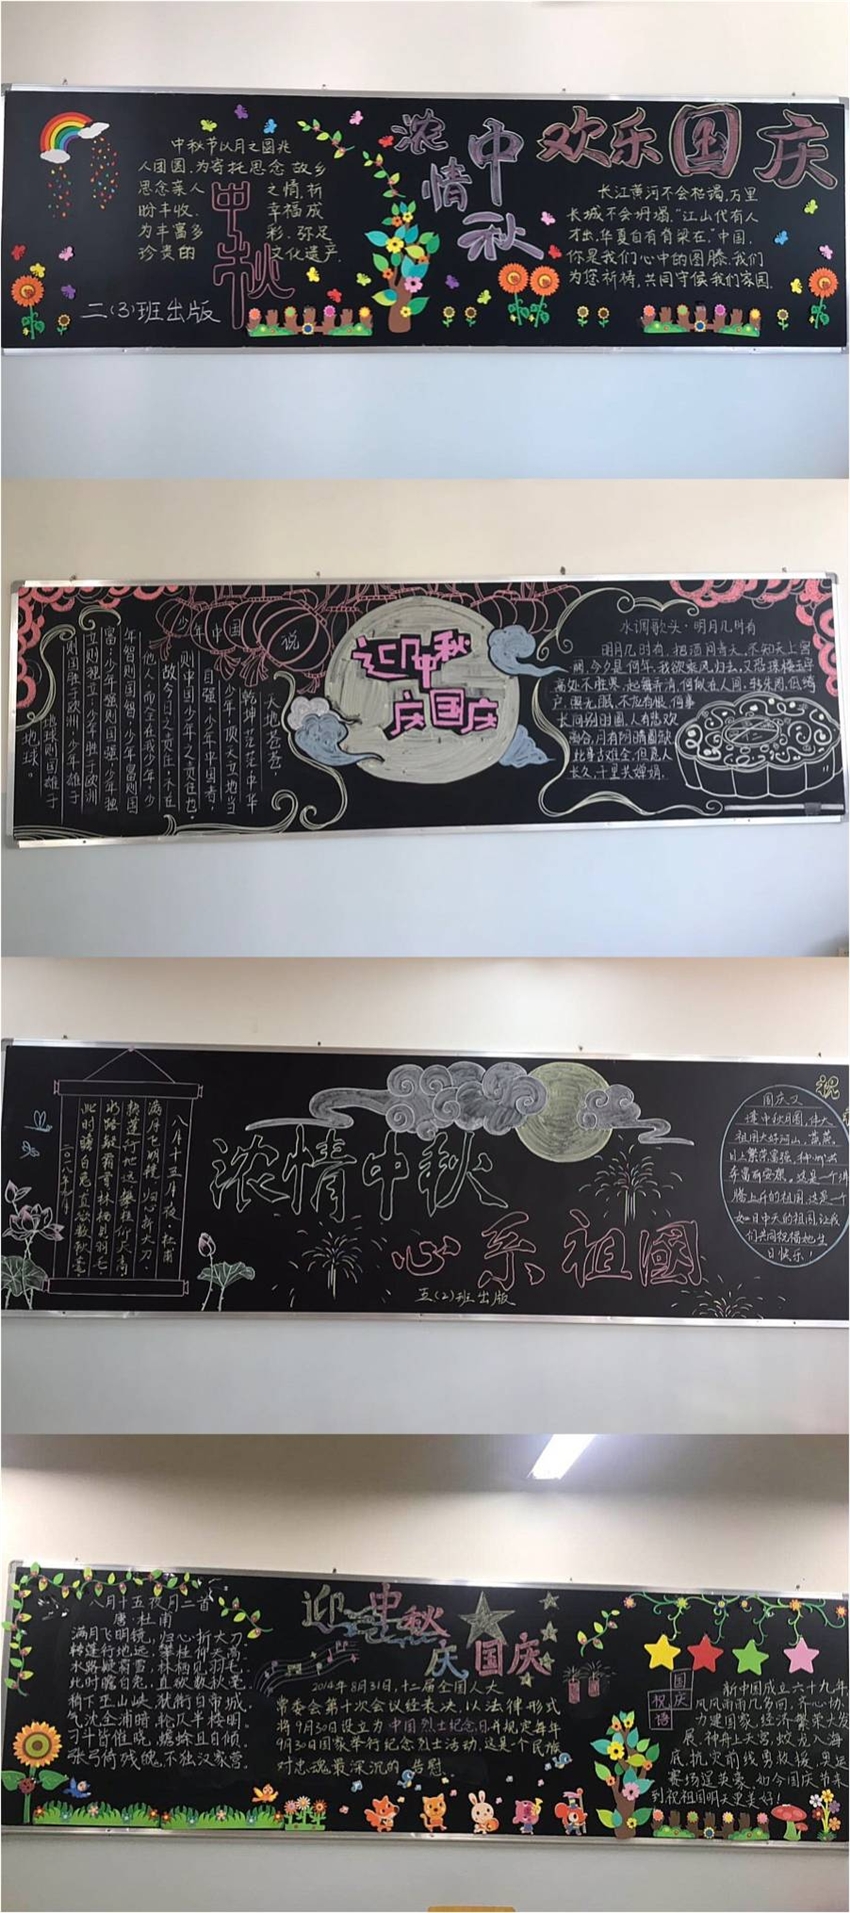 浓情中秋
欢乐国庆
中秋节以月之圆兆
人团圆,为寄托思念故乡
思念亲人之情,祈
盼丰收、幸福,成
为丰富多彩、弥足
珍贵的文化遗产.
中秋
二(3)班出版
长江黄河不会枯竭,万里
长城不会坍塌,“江山代有人
才出,华夏自有脊梁在,”中国,
你是我们心中的图腾,我们
为您祈祷,共同守候我们家园.
少年中国说
天地苍苍,
乾坤茫茫,中华
少年,顶天立地当
自强,少年中国者,
则中国少年之责任也.
故今日之责任,不在
他人,而全在我少年,少
年智则国智,少年富则国
富;少年强则国强,少年独
立则国独立;少年胜于欧洲
则国胜于欧洲,少年雄于
地球则国雄于
地球。
迎中秋
庆国庆
水调歌头·明月几时有
明月几时有,把酒问青天,不知天上宫
阙,今夕是何年,我欲乘风归去,又恐琼楼玉宇
高处不胜寒,起舞弄清,何似在人间,转朱阁,低绮
户,照无眠,不应有恨,何事
长向别时圆,人有悲欢
离合,月有阴晴圆缺
此事古难全,但愿人
长久,千里共婵娟.
八月十五月夜·杜甫
满月飞明镜,归心折大刀,
转蓬行地远,攀桂仰天高,
水路疑霜雪,林栖见羽毛,
此时瞻白兔,直欲数秋毫
二〇一八年九月
浓情中秋
心系祖國
五(2)班出版
祝
国庆又
逢中秋月圆,伟大
祖国大好河山,蒸蒸
日上繁荣富强,神州
年富而安康。这是一个沸
腾上升的祖国,这是一个
如日中天的祖国,让我
们共同祝福她生
日快乐!
八月十五夜月二首
唐·杜甫
满月飞明镜,归心折大刀.
转蓬行地远,攀桂仰天高
水路疑霜雪,林栖见羽毛.
此时瞻白兔,直欲数秋毫
稍下巫山峡,犹衔白帝城
气沈全浦暗,轮仄半楼明.
刁斗皆催晓,蟾蜍且自倾,
张弓倚残魄,不独汉家营.
迎中秋
庆国庆
2014年8月31日,十二届全国人大
常委会第十次会议经表决,以法律形式
将9月30日设立为中国烈士纪念日,并规定每年
9月30日国家举行纪念烈士活动,这是一个民族
对忠魂最深沉的告慰.
国庆祝语
新中国成立六十九年,
风风雨雨几多回,齐心协
力建国家,经济繁荣大发
展,神舟上天宫,蛟龙入海
底,抗灾前线勇救援,奥运
赛场逞英豪,如今国庆节来
到祝祖国明天更美好!